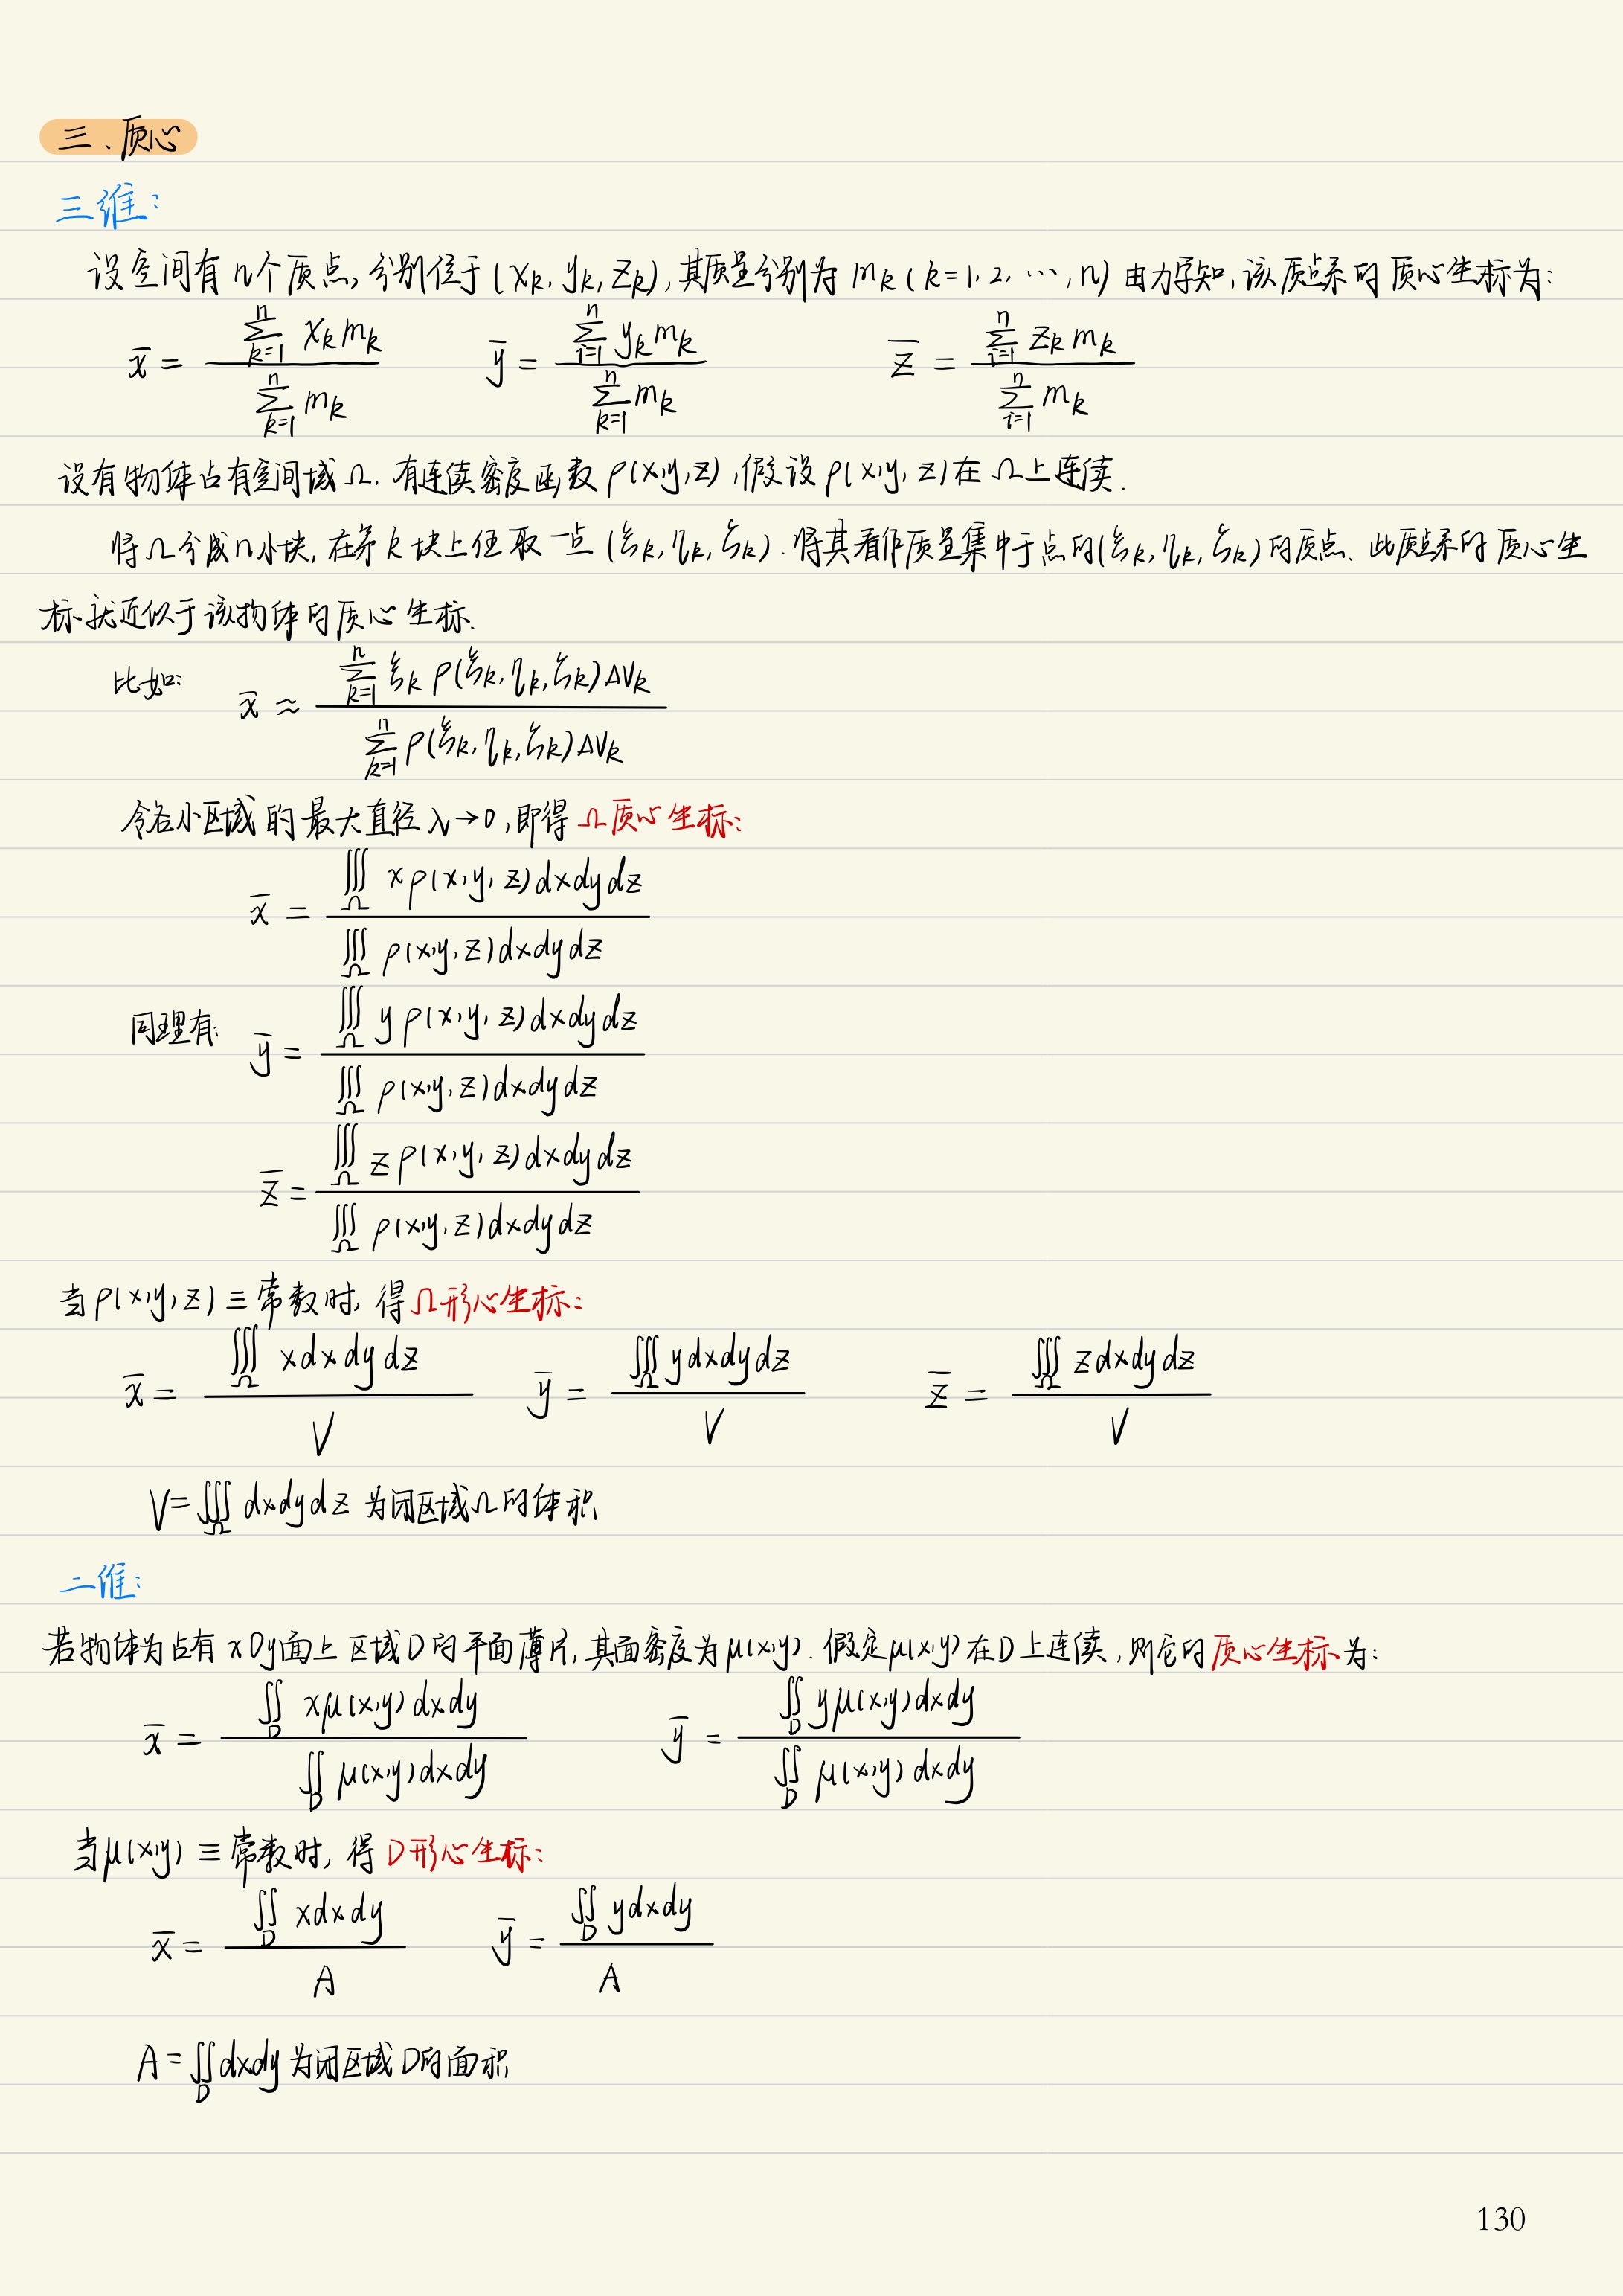 三、质心
三维：
设空间有n个质点，分别位于(xₖ, yₖ, zₖ)，其质量分别为 mₖ (k=1, 2, …, n) 由力学知，该质点系的质心坐标为：
$\bar{x} = \frac{\sum_{k=1}^{n} x_k m_k}{\sum_{k=1}^{n} m_k}$ $\bar{y} = \frac{\sum_{i=1}^{n} y_k m_k}{\sum_{k=1}^{n} m_k}$ $\bar{z} = \frac{\sum_{i=1}^{n} z_k m_k}{\sum_{i=1}^{n} m_k}$
设有物体占有空间域Ω，有连续密度函数ρ(x,y,z)，假设ρ(x,y,z)在Ω上连续.
将Ω分成n小块，在第k块上任取一点(ξₖ, ηₖ, ζₖ). 将其看作质量集中于点的(ξₖ, ηₖ, ζₖ)的质点、此质点系的质心坐
标就近似于该物体的质心坐标.
比如： $\bar{x} \approx \frac{\sum_{k=1}^{n} \xi_k \rho(\xi_k, \eta_k, \zeta_k) \Delta V_k}{\sum_{k=1}^{n} \rho(\xi_k, \eta_k, \zeta_k) \Delta V_k}$
令各小区域的最大直径λ→0，即得Ω质心坐标：
$\bar{x} = \frac{\iiint_{\Omega} x\rho(x,y,z)dxdydz}{\iiint_{\Omega} \rho(x,y,z)dxdydz}$
同理有： $\bar{y} = \frac{\iiint_{\Omega} y\rho(x,y,z)dxdydz}{\iiint_{\Omega} \rho(x,y,z)dxdydz}$
$\bar{z} = \frac{\iiint_{\Omega} z\rho(x,y,z)dxdydz}{\iiint_{\Omega} \rho(x,y,z)dxdydz}$
当ρ(x,y,z)≡常数时，得Ω形心坐标：
$\bar{x} = \frac{\iiint_{\Omega} xdxdydz}{V}$ $\bar{y} = \frac{\iiint_{\Omega} ydxdydz}{V}$ $\bar{z} = \frac{\iiint_{\Omega} zdxdydz}{V}$
$V = \iiint_{\Omega} dxdydz$ 为闭区域Ω的体积
二维：
若物体为占有xOy面上区域D的平面薄片，其面密度为μ(x,y). 假定μ(x,y)在D上连续，则它的质心坐标为：
$\bar{x} = \frac{\iint_{D} x\mu(x,y)dxdy}{\iint_{D} \mu(x,y)dxdy}$ $\bar{y} = \frac{\iint_{D} y\mu(x,y)dxdy}{\iint_{D} \mu(x,y)dxdy}$
当μ(x,y)≡常数时，得D形心坐标：
$\bar{x} = \frac{\iint_{D} xdxdy}{A}$ $\bar{y} = \frac{\iint_{D} ydxdy}{A}$
$A = \iint_{D} dxdy$ 为闭区域D的面积
130